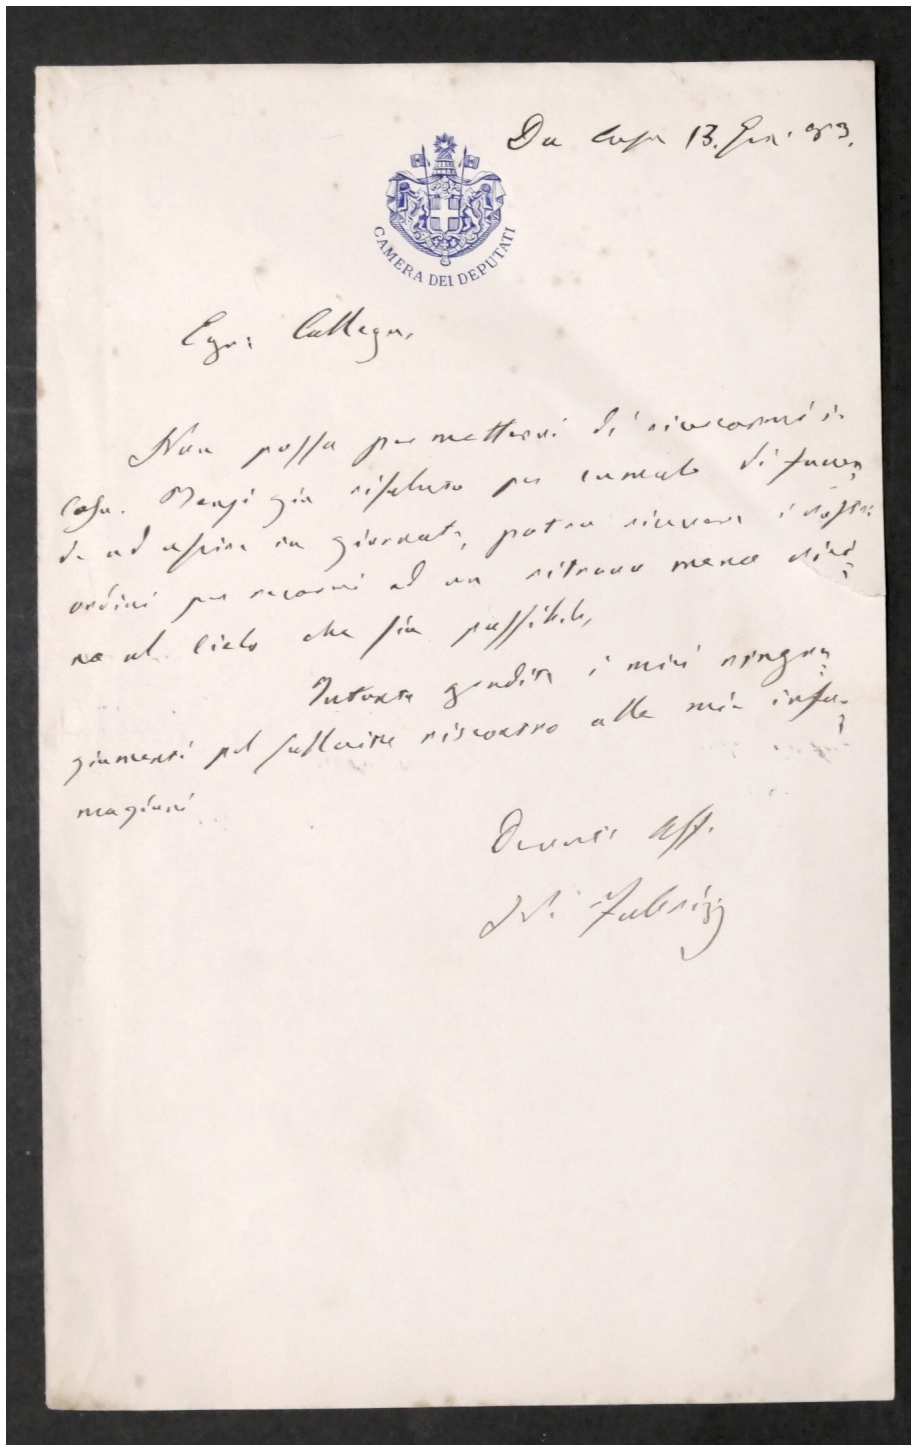 Da Casa 13. Gen. 83.
CAMERA DEI DEPUTATI
Egr: Collega,
Non posso permettervi di incomodarvi in
casa. Sengi già risoluto per cumulo di faccen=
de ad uscire in giornata, potrò ricevere i vostri
ordini per recarmi ad un ritrovo meno vici=
no al Cielo che sia possibile,
Intanto gradite i miei ringra=
ziamenti pel sollecito riscontro alle mie infor=
mazioni
Devoti Aff.
N. Fabrizj